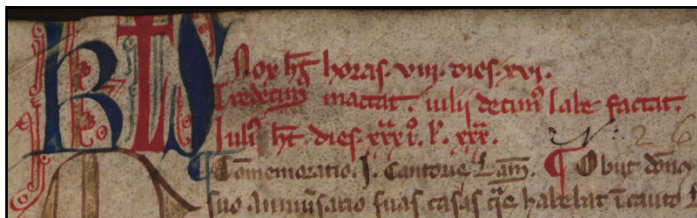 KL Nox ht horas. viii. dies. xvi.
Tredecim mactat. iulii decim9 labe factat.
Iuli9 ht. dies. xxxi. l. xxx.
Comemoratio. J. Cantoris ¶ Obiit dono
suo Anniusario suas casas que habebat i cauto